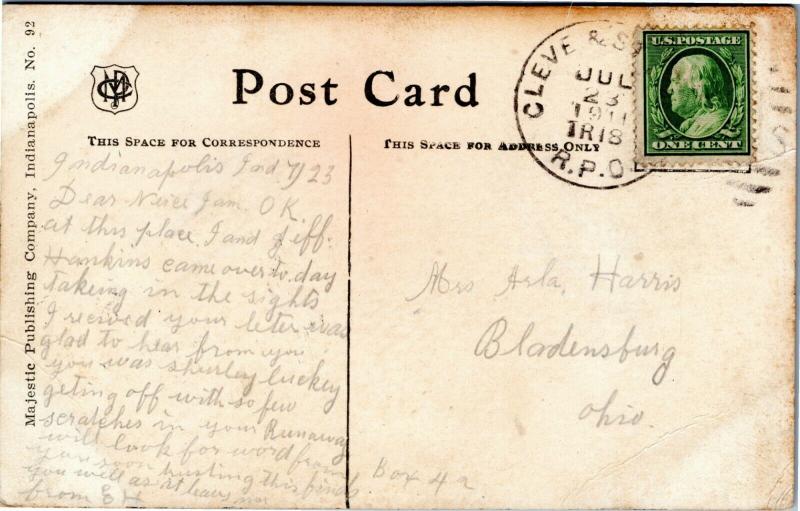 Majestic Publishing Company, Indianapolis. No. 92
Post Card
THIS SPACE FOR CORRESPONDENCE
THIS SPACE FOR ADDRESS ONLY
CLEVE & S
JUL
23
1911
TR18
R.P.O.
U.S. POSTAGE
ONE CENT
Indianapolis Ind 7/23
Dear Neice I am O K.
at this place. I and Jeff.
Hankins came over to day
takeing in the sights
I recived your leter was
glad to hear from you
you was shurley luckey
geting off with so few
scratches in your Runaway
will look for word from
you soon trusting this finds
you well as it leavs me
from E H
Mrs Arla, Harris
Bladensburg
Ohio.
Box 42